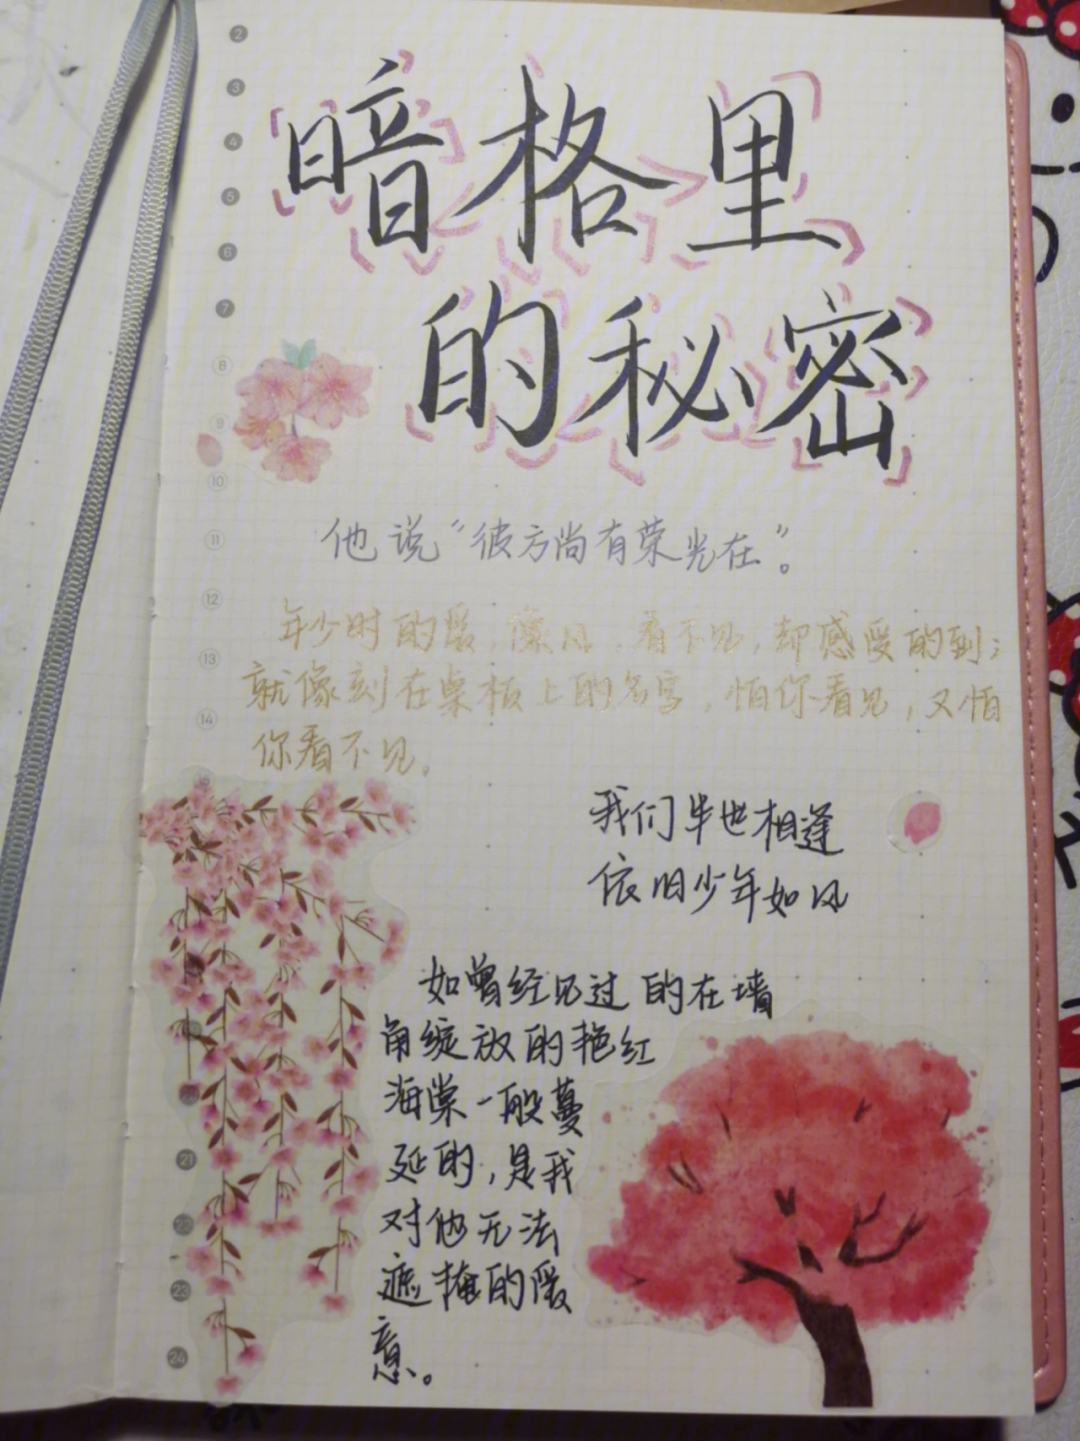 暗格里
的秘密
他说“彼方尚有荣光在”。
年少时的爱,像风,看不见,却感受的到;
就像刻在桌板上的名字,怕你看见,又怕
你看不见。
我们半世相逢
依旧少年如风
如曾经见过的在墙
角绽放的艳红
海棠一般蔓
延的,是我
对他无法
遮掩的爱
意。
2
3
4
5
6
7
8
9
10
11
12
13
14
21
22
23
24